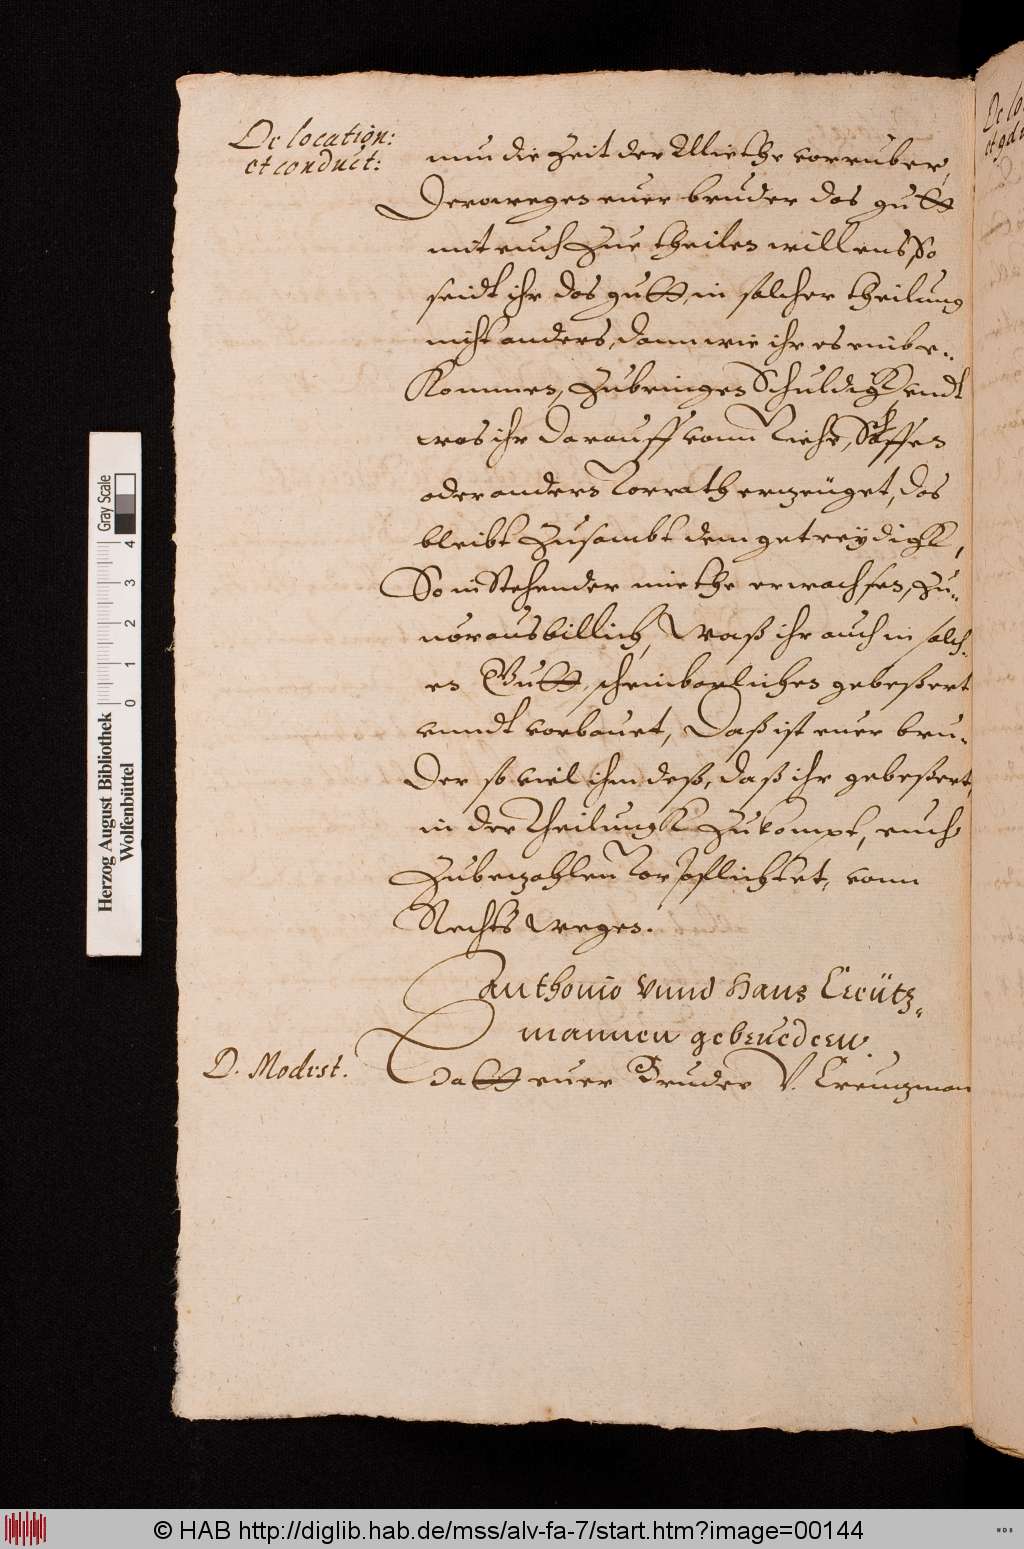 De location:
et conduct:
nun die Zeit der Miethe vorruber,
Derowegen euer bruder das gutt
mit euch Zue theilen willens, So
seidt ihr das gutt, in solcher theilung
nicht anders, dann wie ihr es einbe-
Kommen, Zubringen Schuldigk, undt
was ihr darauff vonn Viehe, Schaffen
oder anders Vorrath erzeuget, das
bleibt Zusambt dem getreydigk,
So in Stehender miethe erwachsen, Zu-
voraus billich, Waß ihr auch in solch-
en Gutt, scheinbarlichen gebeßert
unndt vorbauet, Daß ist euer bru-
der so viel ihm deß, daß ihr gebeßert,
in der Theilungk Zukompt, euch
Zubezahlen Vorpflichtet, vonn
Rechts wegen.
Anthonio Vnnd Hans Creütz-
mannen gebruedern.
D. Modest.
Hatt euer Bruder V. Creuzman
Herzog August Bibliothek
Wolfenbüttel
0 1 2 3 4
Gray Scale
De lo
et
© HAB http://diglib.hab.de/mss/alv-fa-7/start.htm?image=00144